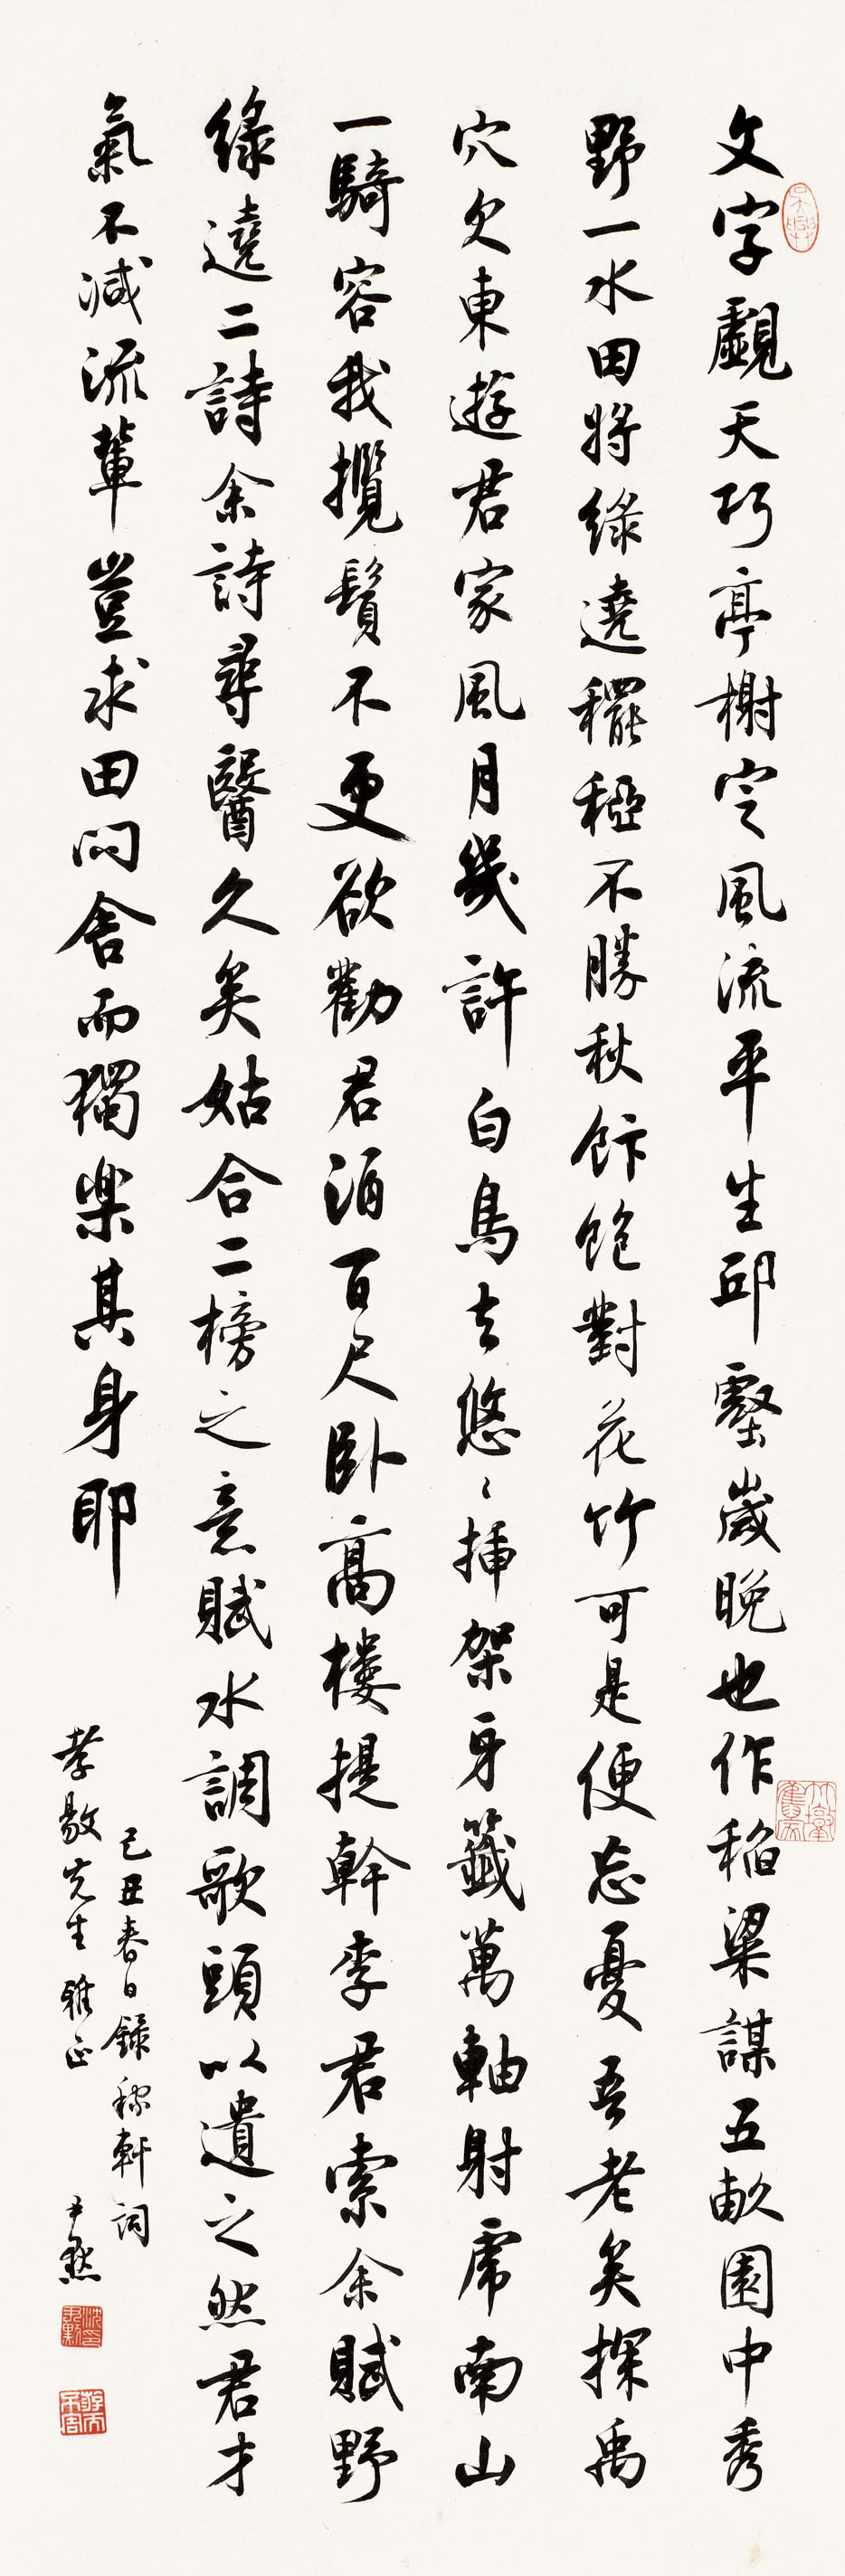 文字覷天巧亭榭定風流平生邱壑歲晚也作稻粱謀五畝園中秀
野一水田將綠遶䆉稏不勝秋飰飽對花竹可是便忘憂吾老矣探禹
穴欠東遊君家風月幾許白鳥去悠〻揷架牙籤萬軸射虎南山
一騎容我攬鬢不更欲勸君酒百尺卧高樓提幹李君索余賦野
綠遶二詩余詩尋醫久矣姑合二榜之意賦水調歌頭以遺之然君才
氣不減流輩豈求田問舍而獨樂其身耶
己丑春日錄稼軒詞
孝敭先生雅正
尹默